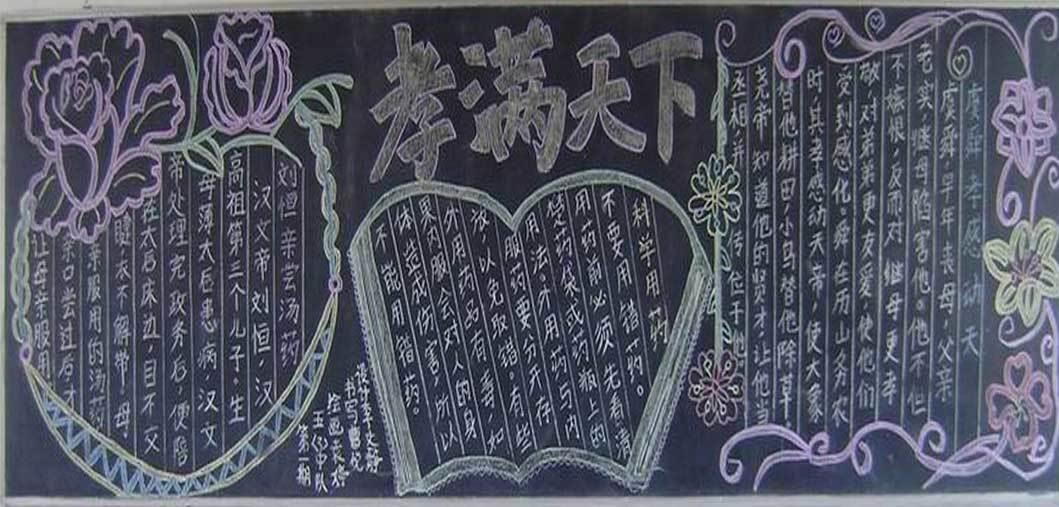 孝满天下
虞舜孝感动天
虞舜早年丧母,父亲
老实,继母陷害他。他不但
不嫉恨,反而对继母更孝
敬,对弟弟更友爱,使他们
受到感化。舜在历山务农
时,其孝感动天帝,使大象
替他耕田,小鸟替他除草,
尧帝知道他的贤才,让他当
丞相,并传位于他
科学用药
不要用错药。
用药前必须先看清
楚药袋或药瓶上的
用法,外用药与内
服药要分开存
放,以免取错。有些
外用药品有毒,如
果内服会对人的身
体造成伤害,所以
不能用错药。
刘恒亲尝汤药
汉文帝刘恒,汉
高祖第三个儿子。生
母薄太后患病,汉文
帝处理完政务后,便陪
在太后床边,目不交
睫,衣不解带,母
亲服用的汤药
亲口尝过后,才
让母亲服用
五(1)中队
第一期